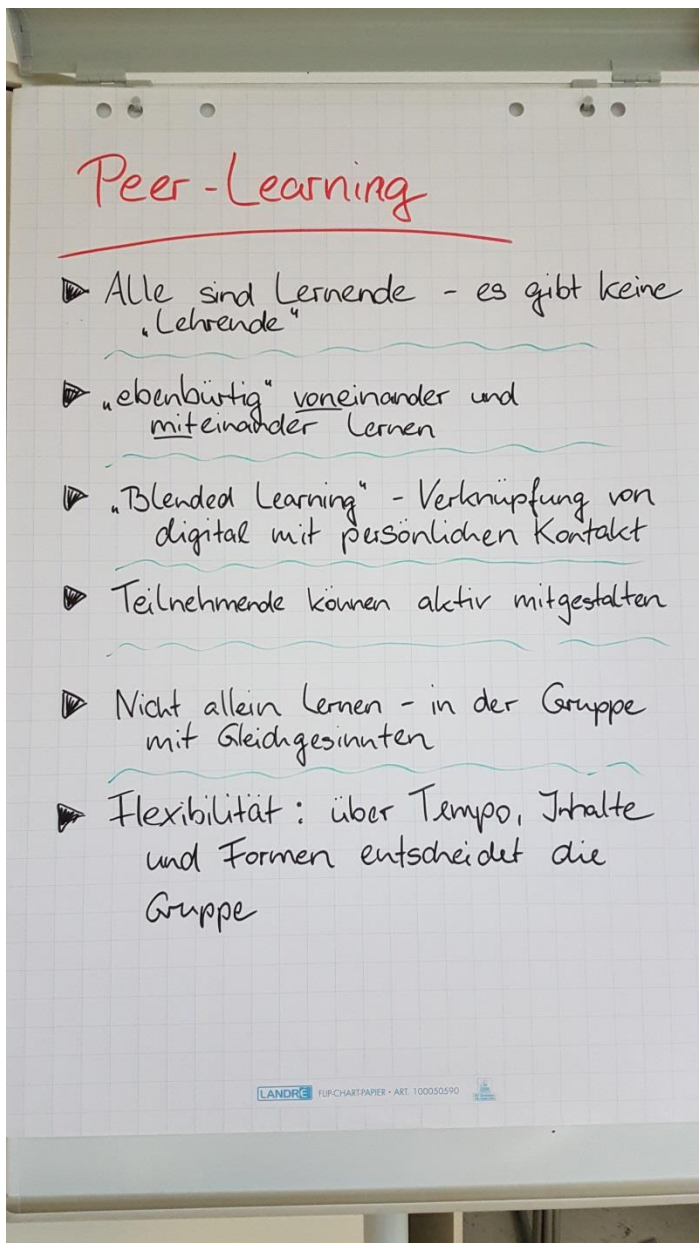 Peer-Learning
Alle sind Lernende - es gibt keine
„Lehrende"
„ebenbürtig" voneinander und
miteinander Lernen
„Blended Learning" - Verknüpfung von
digital mit persönlichen Kontakt
Teilnehmende können aktiv mitgestalten
Nicht allein Lernen - in der Gruppe
mit Gleichgesinnten
Flexibilität: über Tempo, Inhalte
und Formen entscheidet die
Gruppe
LANDRÉ FLIP-CHART-PAPIER • ART. 100050590